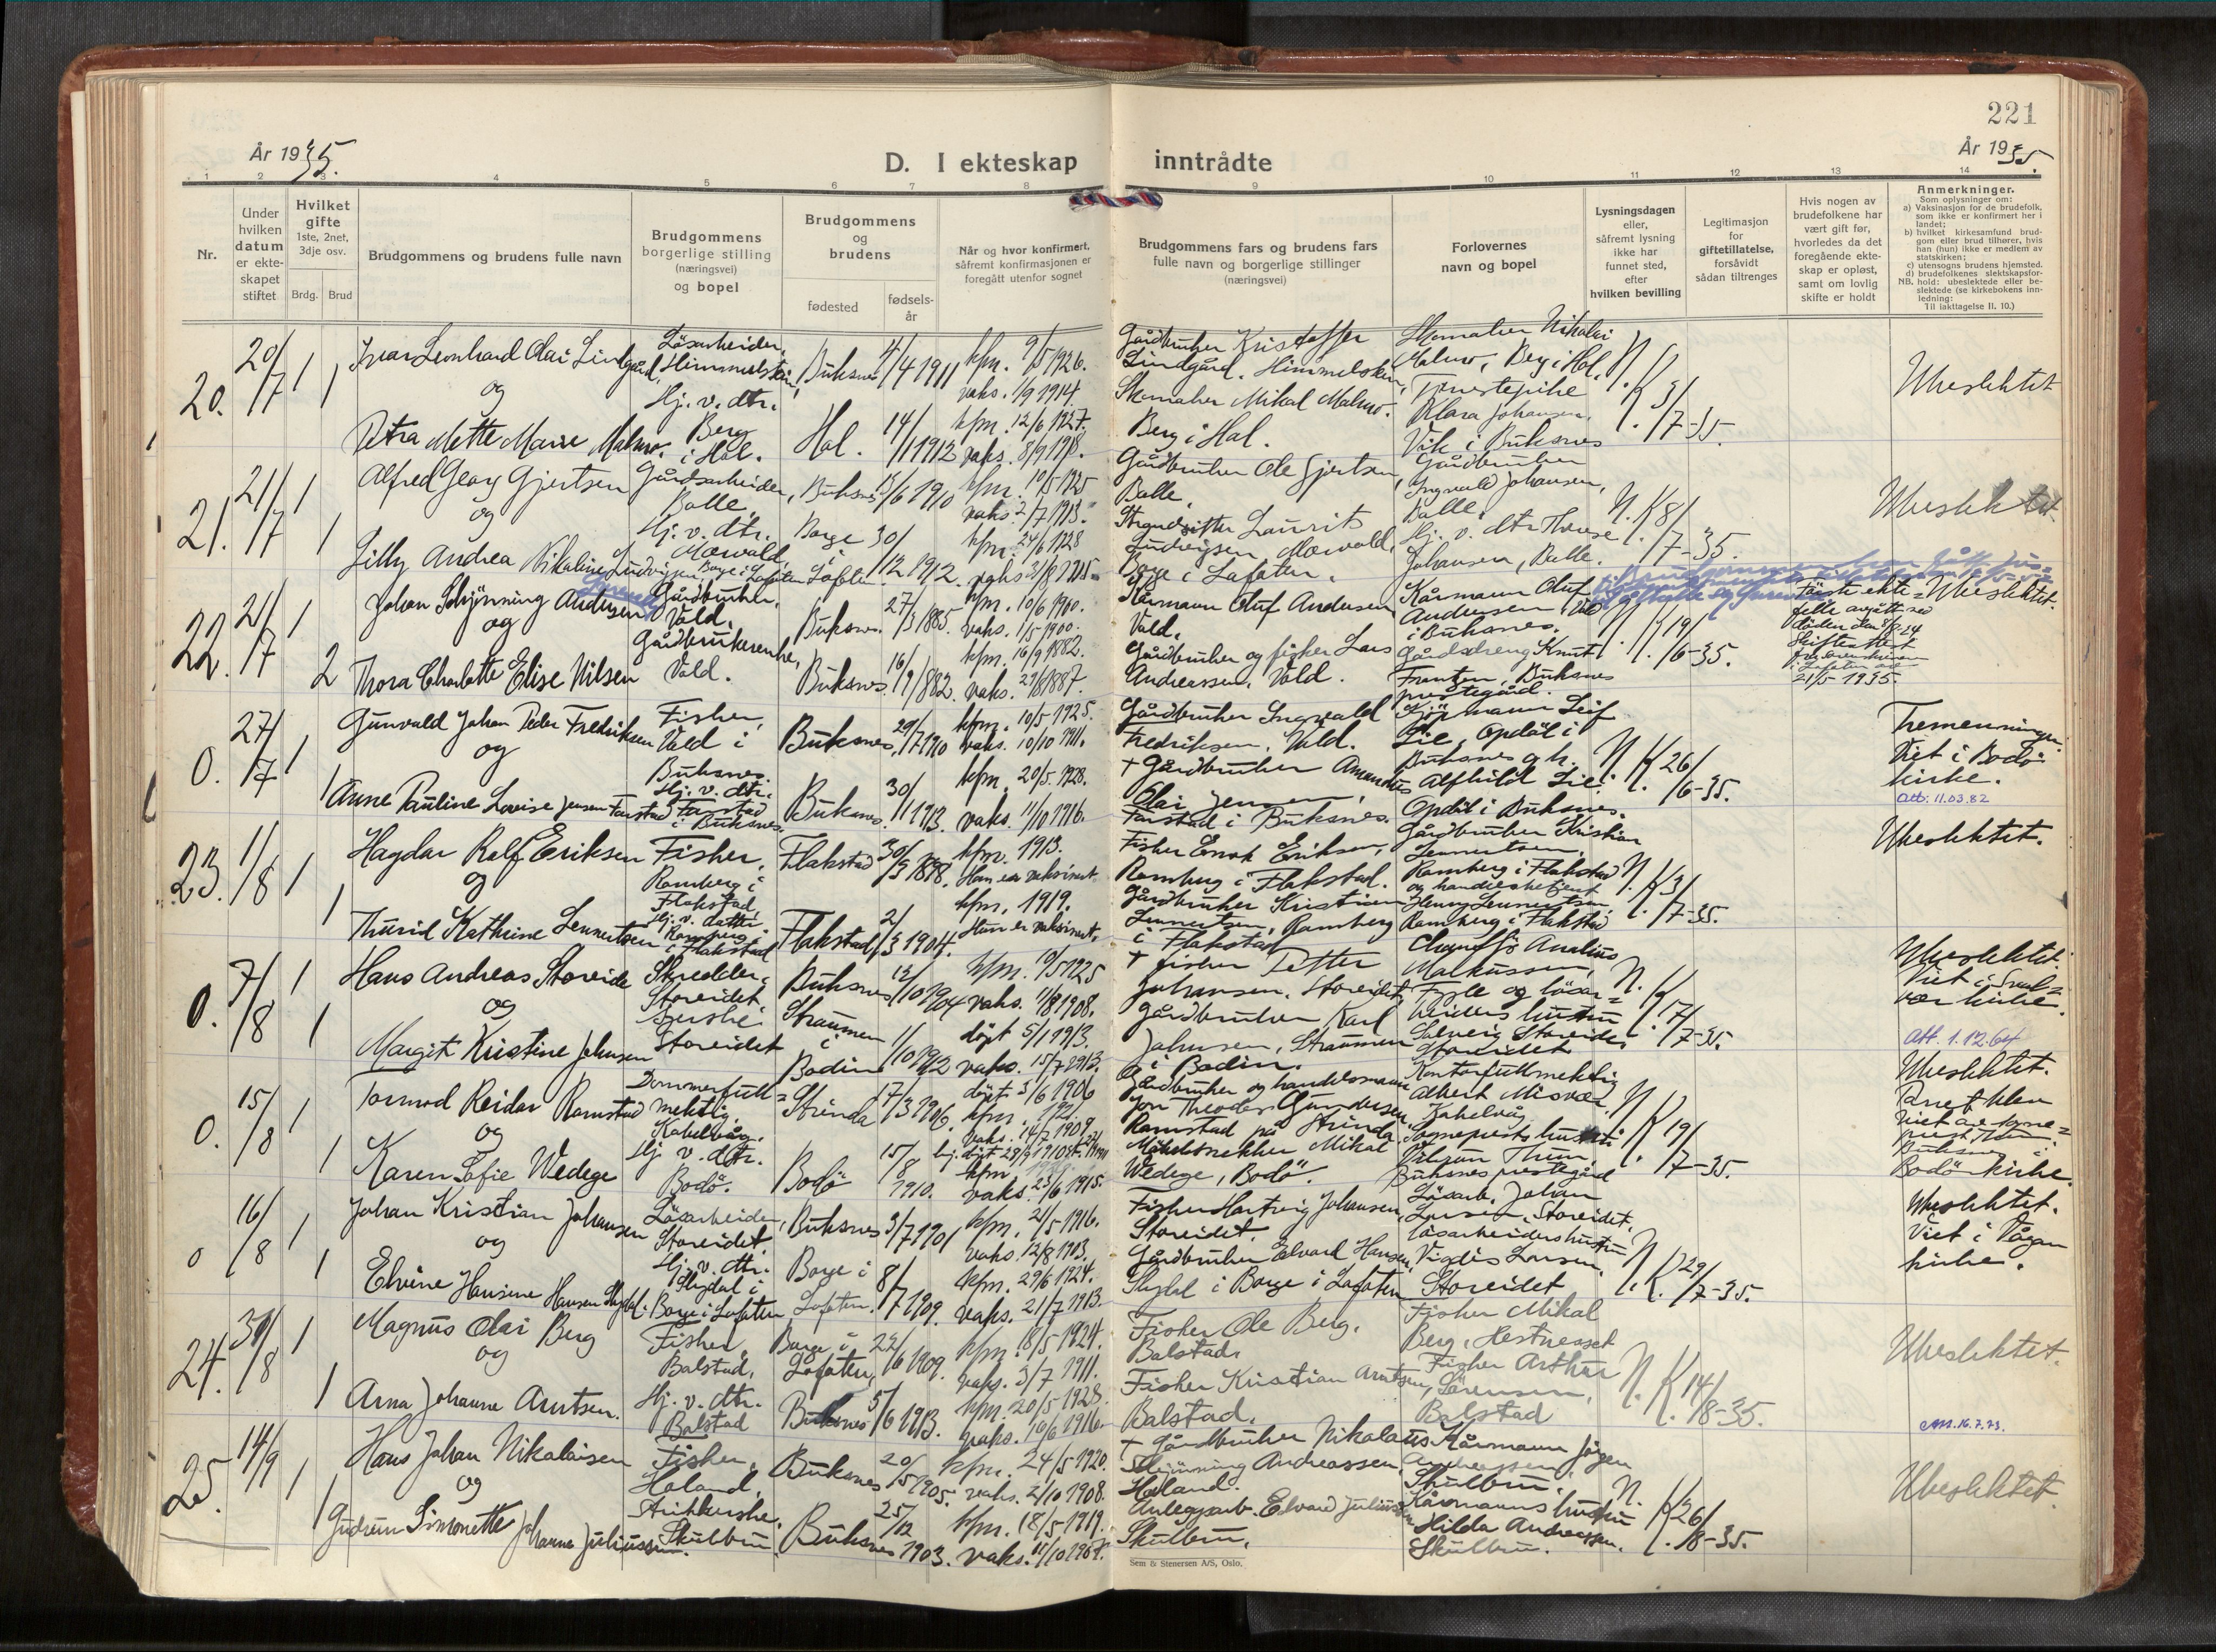 221
År 1935.
D. I ekteskap
inntrådte
År 1935.
1 2 3 4 5 6 7 8 9 10 11 12 13 14
Nr.
Under
hvilken
datum
er ekte-
skapet
stiftet
Hvilket
gifte
1ste, 2net,
3dje osv.
Brdg.
Brud
Brudgommens og brudens fulle navn
Brudgommens
borgerlige stilling
(næringsvei)
og bopel
Brudgommens
og
brudens
fødested
fødsels-
år
Når og hvor konfirmert,
såfremt konfirmasjonen er
foregått utenfor sognet
Brudgommens fars og brudens fars
fulle navn og borgerlige stillinger
(næringsvei)
Forlovernes
navn og bopel
Lysningsdagen
eller,
såfremt lysning
ikke har
funnet sted,
efter
hvilken bevilling
Legitimasjon
for
giftetillatelse,
forsåvidt
sådan tiltrenges
Hvis nogen av
brudefolkene har
vært gift før,
hvorledes da det
foregående ekte-
skap er opløst,
samt om lovlig
skifte er holdt
Anmerkninger.
Som oplysninger om:
a) Vaksinasjon for de brudefolk,
som ikke er konfirmert her i
landet;
b) hvilket kirkesamfund brud-
gom eller brud tilhører, hvis
han (hun) ikke er medlem av
statskirken;
c) utensogns brudens hjemsted.
d) brudefolkenes slektskapsfor-
NB. hold: ubeslektede eller be-
slektede (se kirkebokens inn-
ledning:
Til iakttagelse II. 10.)
20.
20/7
1
1
Ivar Leonhard Olai Lindgård,
og
Petra Mette Marie Malmo.
Løsarbeider,
Himmelstein,
Hj. v. dtr.
Berg
i Hol.
Buksnes
4/4 1911
Hol.
14/11 1912
kfm. 9/5 1926.
vaks. 1/9 1914.
kfm. 12/6 1927.
vaks. 8/9 1918.
Gårdbruker Kristoffer
Lindgård. Himmelstein,
Skomaker Mikal Malmo.
Berg i Hol.
Skomaker Nikolai
Malmo, Berg i Hol.
Tjenestepike
Klara Johansen,
Vik i Buksnes
N. K. 3/7-35.
Ubeslektet
21.
21/7
1
1
Alfred Georg Gjertsen
og
Lilly Andrea Nikoline Ludvigsen,
Gårdsarbeider,
Balle,
Hj. v. dtr.
Borge i Lofoten
Buksnes
15/6 1910
Borge
i
Lofoten
30/12 1912.
kfm. 10/5 1925
vaks. 2/7 1913.
kfm. 24/6 1928
Gårdbruker Ole Gjertsen,
Balle,
Strandsitter Laurits
Ludvigsen,
Borge i Lofoten.
Gårdbruker
Ingvald Johansen,
Balle.
Hj. v. dtr.
Johansen, Balle.
N. K. 8/7-35.
Ubeslektet
22.
21/7
1
2
Johan Schjønning Andersen
og
Thora Charlotte Elise Nilsen
Gårdbruker,
Vold.
Gårdbrukerenke,
Vold.
Buksnes.
27/3 1885.
Buksnes.
16/9 1882.
kfm. 10/6 1900.
vaks. 1/5 1900.
kfm. 16/9 1882.
vaks. 29/6 1887.
Kårmann Oluf Andersen
Vold.
Gårdbruker og fisker Lars
Andreassen, Vold.
Kårmann Oluf
Andersen Vold
i Buksnes.
Gårdsdreng Knut
Frantzen, Buksnes
prestegård.
N. K. 19/6-35.
Første ekte=
felle avgått ved
døden den 8/8-24
Skifteattest
fra sorenskriveren
i Lofoten av
21/5-1935.
Ubeslektet.
0.
27/7
1
1
Gunvald Johan Peder Fredriksen
og
Anne Pauline Lovise Jensen Farstad
Fisker,
Vold i
Buksnes.
Hj. v. dtr.
Farstad
i Buksnes.
Buksnes,
29/7 1910
Buksnes.
30/11 1913.
kfm. 10/5 1925.
vaks. 10/10 1911.
kfm. 20/5 1928.
vaks. 11/10 1916.
Gårdbruker Ingvald
Fredriksen, Vold.
+ Gårdbruker Amandus
Olai Jensen,
Farstad i Buksnes.
Kjøpmann Leif
Lie, Opdøl i
Buksnes og h.
Alfhild Lie.
Opdøl i Buksnes.
N. K. 26/6-35.
Tremenninger.
Viet i Bodø
kirke.
Att: 11.03.82
23.
1/8
1
1
Hagdar Rolf Eriksen
og
Thurid Kathrine Lennertsen
Fisker,
Ramberg i
Flakstad
Hj. v. datter
Ramberg
i Flakstad
Flakstad
30/3 1898.
Flakstad
2/3 1904.
kfm. 1913.
Han er vaksinert.
kfm. 1919.
Hun er vaksinert.
Fisker Enok Eriksen,
Ramberg i Flakstad.
Gårdbruker Kristian
Lennertsen, Ramberg
i Flakstad
Gårdbruker Kristian
Lennertsen,
Ramberg i Flakstad
og handelsbetjent
Henry Lennertsen,
Ramberg i Flakstad
N. K. 3/7-35.
Ubeslektet.
0.
7/8
1
1
Hans Andreas Storeide
og
Margit Kristine Johnsen
Skredder,
Storeidet
Storeidet
Buksnes
13/10 1904
Straumen
i
Bodin
1/10 1912
kfm. 10/5 1925
vaks. 11/8 1908.
døpt 5/1 1913.
vaks. 15/7 1913.
+ fisker Petter
Johansen. Storeidet
Gårdbruker Karl
Johnsen, Straumen
i Bodin.
Chauffør Analius
Markussen,
Fygle og løsar=
beiders hustru
Solveig Storeide,
Storeidet
N. K. 17/7-35.
Ubeslektet
Viet i Svol=
vær kirke.
Att. 1.12.64
0.
15/8
1
1
Tormod Reidar Ramstad
og
Karen Sofie Wedege
Dommerfull=
mektig,
Kabelvåg.
Hj. v. dtr.
Bodø.
Strinda
17/3 1906.
Bodø
15/8 1910.
døpt 3/6 1906
kfm. 1921.
vaks. 14/7 1909
vaks. 23/6 1915.
Gårdbruker og handelsmann
Jon Theodor Gundersen
Ramstad på Strinda.
Møbelsnekker Mikal
Wedege, Bodø.
Kontorfullmektig
Albert Misvær
Kabelvåg
Sogneprests hustru
Thun,
Buksnes prestegård
N. K. 19/7-35.
Ubeslektet.
Viet av sogne=
prest Thun,
Buksnes i
Bodø kirke.
0
16/8
1
1
Johan Kristian Johansen
og
Elvine Hansine Hansen Slydal.
Løsarbeider,
Storeidet.
Hj. v. dtr.
Slydal i
Borge i Lofoten
Buksnes
3/7 1901
Borge i
Lofoten.
8/7 1909.
kfm. 21/5 1916.
vaks. 12/8 1903.
kfm. 29/6 1924.
vaks. 21/7 1913.
Fisker Hartvig Johansen,
Storeidet.
Gårdbruker Edvard Hansen
Slydal i Borge i Lofoten
Løsarb. Johan
Larsen, Storeidet.
Løsarbeiders hustru
Vigdis Larsen,
Storeidet
N. K. 29/7-35.
Ubeslektet.
Viet i Vågan
kirke.
24.
31/8
1
1
Magnus Olai Berg
og
Arna Johanne Arntsen.
Fisker,
Balstad,
Hj. v. dtr.
Balstad
Borge i
Lofoten,
22/6 1909.
Buksnes
5/6 1913.
kfm. 18/5 1924.
vaks. 3/7 1911.
kfm. 20/5 1928.
vaks. 10/6 1916.
Fisker Ole Berg.
Balstad.
Fisker Kristian Arntsen,
Balstad.
Fisker Mikal
Berg, Hestnesset
Fisker Arthur
Sørensen,
Balstad
N. K. 14/8-35.
Ubeslektet.
Att. 16.7.73.
25.
14/9
1
1
Hans Johan Nikolaisen
og
Gudrun Simonette Johanne Juliussen.
Fisker,
Holand.
Strikkerske,
Skulbru.
Buksnes
20/5 1905.
Buksnes
25/12 1903.
kfm. 24/5 1920.
vaks. 2/10 1908.
kfm. 18/5 1919.
vaks. 11/10 1907.
+ Gårdbruker Nikolaus
Schjønning Andreassen,
Holand.
Anleggsarb. Edvard Juliussen
Skulbru.
Kårmann Jørgen
Andreassen,
Skulbru.
Kårmanns hustru
Hilda Andreassen.
Skulbru.
N. K. 26/8-35.
Ubeslektet.
Sem & Stenersen A/S, Oslo.